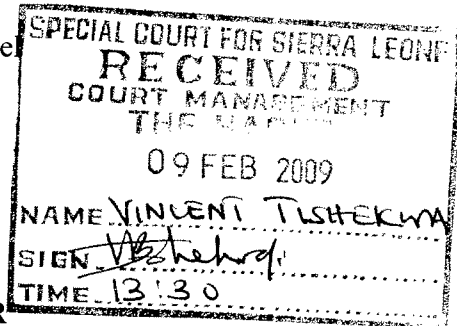 SPECIAL COURT FOR SIERRA LEONE
RECEIVED
COURT MANAGEMENT
THE
09 FEB 2009
NAME VINCENT TISHEKWA
SIGN
TIME 13:30
R